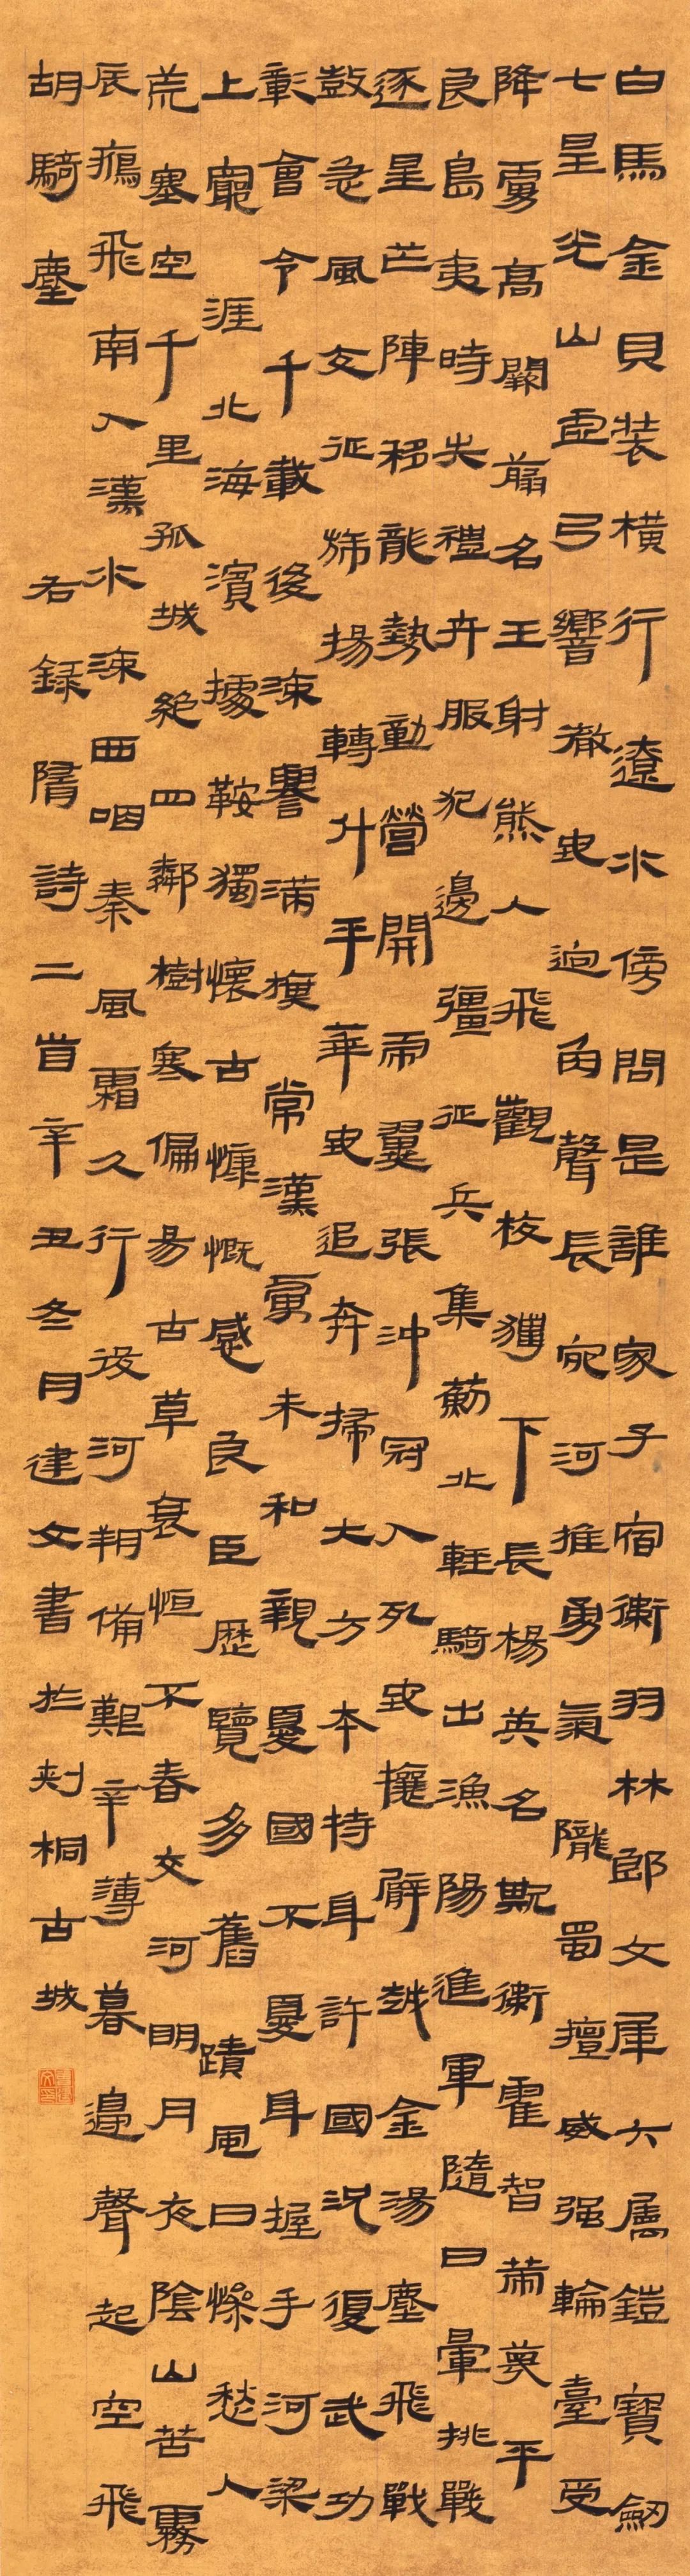 白馬金貝裝橫行遼水傍問是誰家子宿衛羽林郎文犀六屬鎧寶劒
七星光山虛弓響徹地迥角聲長宛河推勇氣隴蜀擅威强輪臺受
降虜高闕翦名王射熊入飛觀校獵下長楊英名欺衛霍智蕑莫平
良島夷時失禮卉服犯邊彊征兵集薊北輕騎出漁陽進軍隨日暈挑戰
逐星芒陣移龍勢動營開雨翼張沖冠入死地攘臂越金湯塵飛戰
鼓急風交征旆揚轉鬥平華地追奔掃大方本持身許國況復武功
彰會令千載後流譽滿旗常漢虜未和親憂國不憂身握手河梁
上窮涯北海濱據鞍獨懷古慷慨感良臣歷覽多舊蹟風日慘愁人
荒塞空千里孤城絕四鄰樹寒偏易古草衰恒不春交河明月夜陰山苦霧
辰鴈飛南入漢水流西咽秦風霜久行役河朔備艱辛薄暮邊聲起空飛
胡騎塵 右錄隋詩二首辛丑冬月建文書於刺桐古城